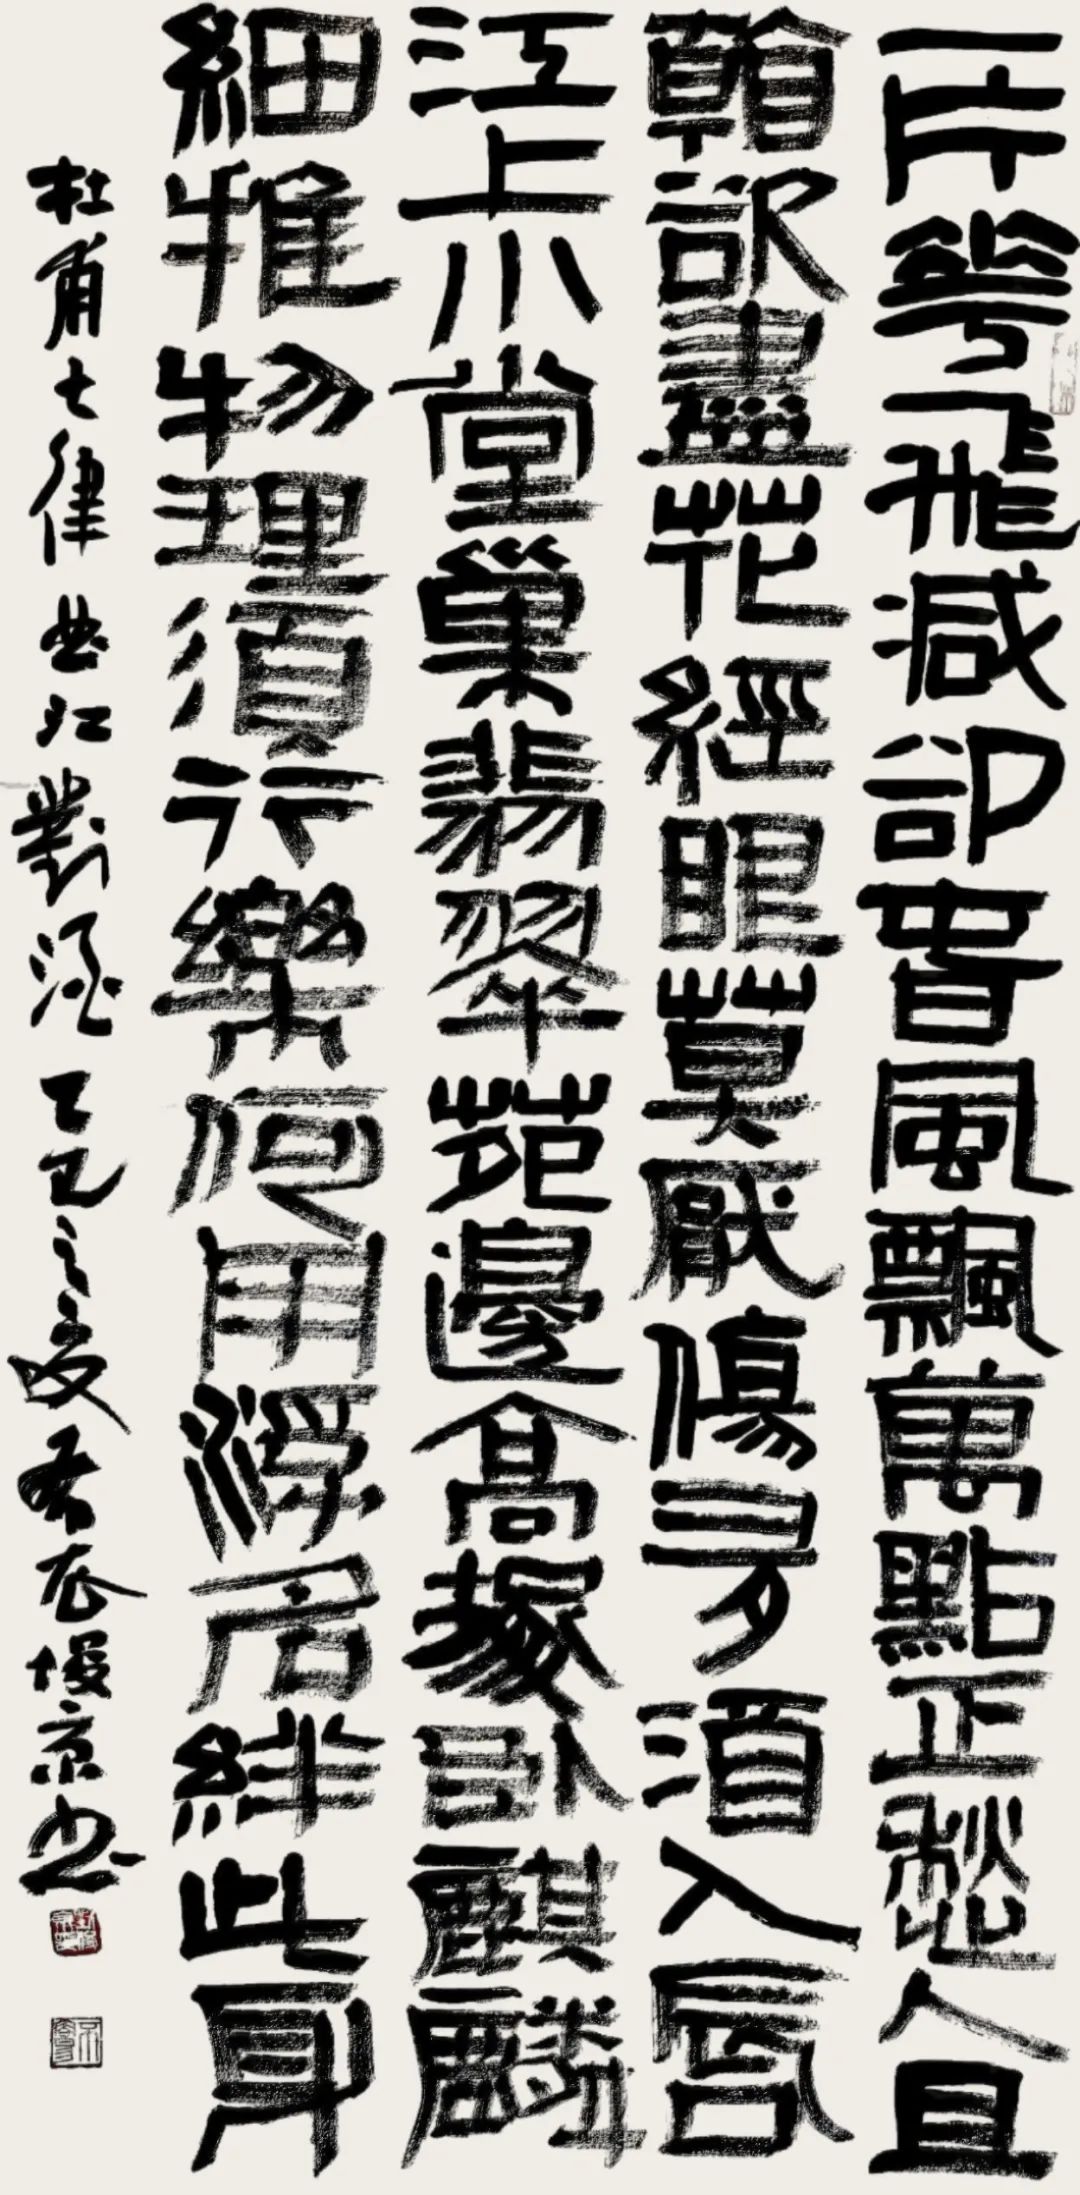 一片華飛減卻春風飄萬點正愁人且
看欲盡花經眼莫厭傷多酒入唇
江上小堂巢翡翠苑邊高塚臥麒麟
細推物理須行樂何用浮名絆此身
杜甫七律曲江對酒乙巳之夏京書